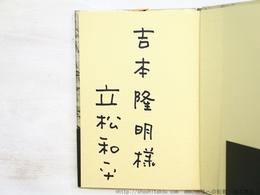 吉本隆明様
立松和平